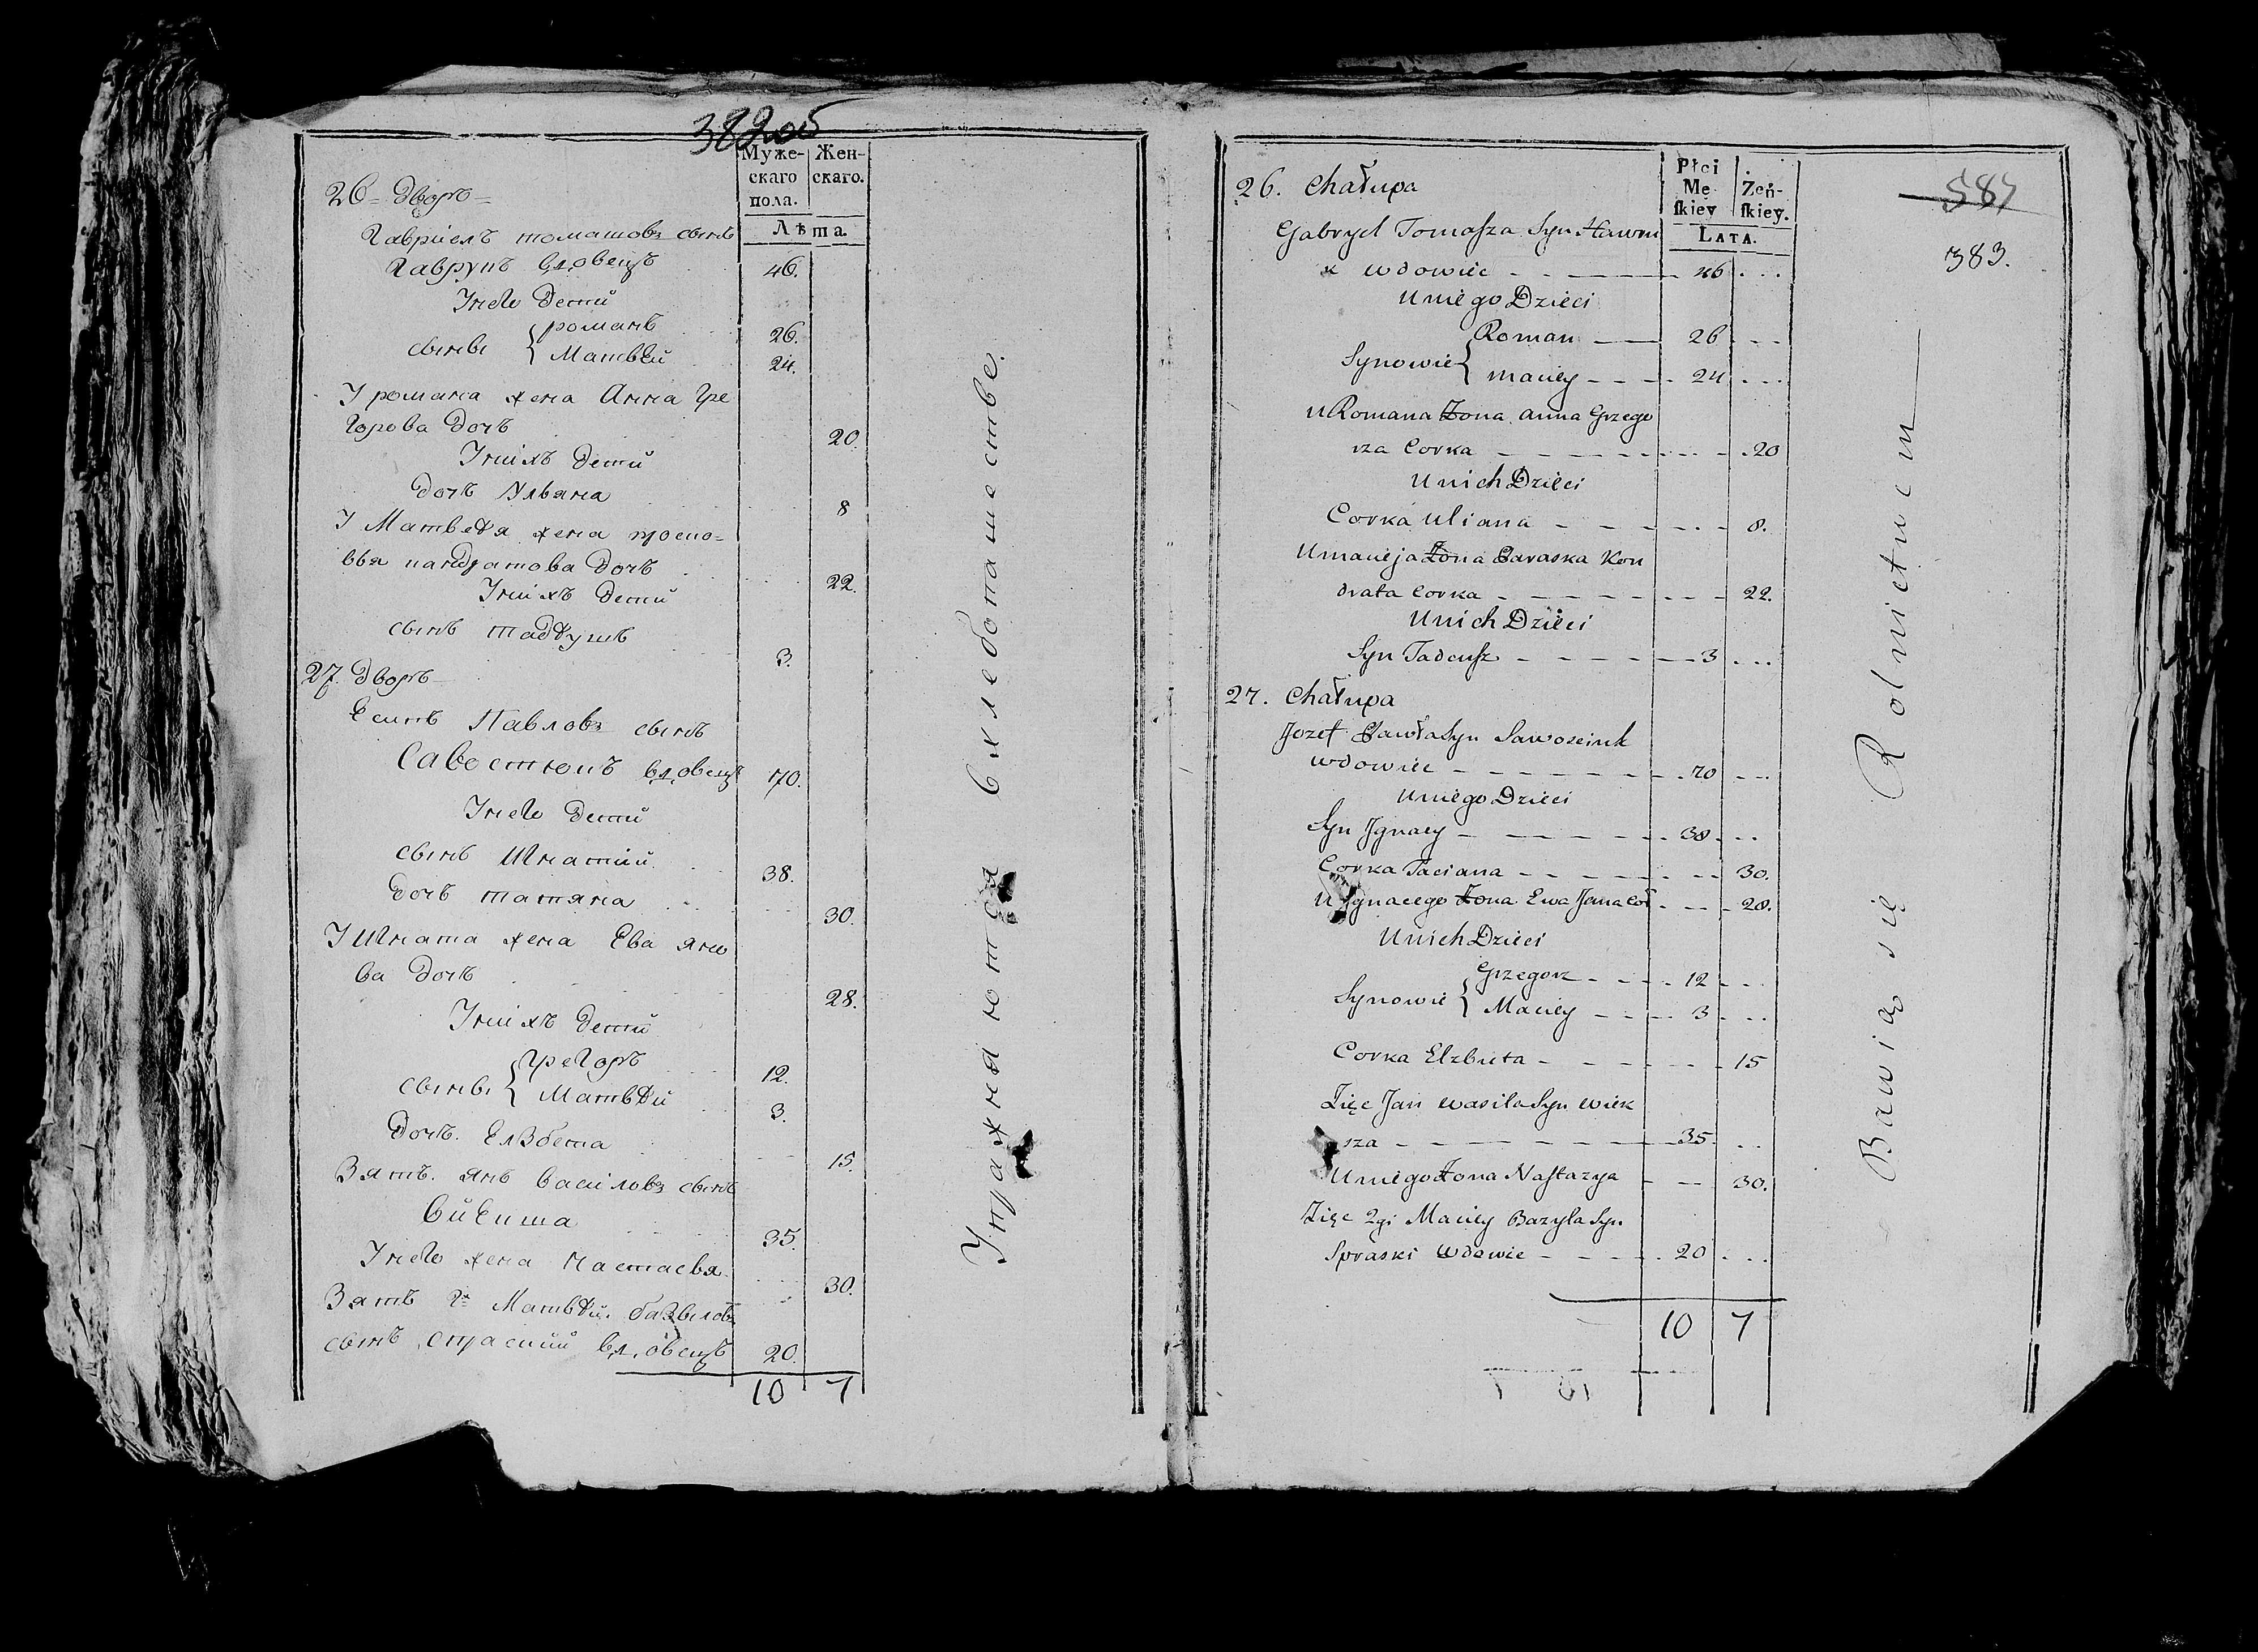 382 об
Муже-
скаго
пола.
Жен-
скаго.
Лѣта.
26 - Дворъ -
Гавриелъ томашовъ сынъ
Гаврукъ вдовецъ 46.
У него Дети
сыны { романъ 26.
Матвей 24.
У романа жена Анна Гре
горова Дочь 20.
У них Дети
Дочь Ульяна 8
У Матвея жена
Кондратова Дочь 22.
У них Дети
сынъ Таддеушъ 3.
27. Дворъ -
Есипъ Павловъ сынъ
Савостюкъ вдовецъ 70.
У него Дети
сынъ Игнатий 38.
Дочь татяна 30.
У Игната жена Ева яно
ва Дочь 28.
У них Дети
сыны { Грегоръ 12.
Матвей 3.
Дочь Елзбета 15.
Зять янъ василовъ сынъ
35.
У него жена настасья 30.
Зять 2й Матвей базылевъ
сынъ спраский вдовецъ 20.
10 7
Упражняются в хлебопашестве.
Płci
Mę-
skiey
Żeń-
skiey.
LATA.
587
383.
26. Chałupa
Gabryel Tomasza Syn Hawru
k wdowiec - - - 46 ...
U niego Dzieci
Synowie { Roman - 26 ...
Maciey - - - 24 ...
U Romana Żona Anna Grzego
rza Corka - - - 20
U nich Dzieci
Corka Uliana - - - 8.
U Macieja Żona Paraska Kon
drata Corka - - - 22.
U nich Dzieci
Syn Tadeusz - - - 3 ...
27. Chałupa
Jozef Pawła Syn Sawosciuk
wdowiec - - - 70 ...
U niego Dzieci
Syn Jgnacy - - - 38 ...
Corka Taciana - - - 30.
U Jgnacego Żona Ewa Jana Cor - - - 28.
U nich Dzieci
Synowie { Grzegorz - - - 12 ...
Maciey - - - 3 ...
Corka Elzbieta - - - 15
Zięc Jan Wasila Syn Wiek
sza - - - 35 ...
U niego Żona Nastazya - - 30.
Zięc 2gi Maciey Bazyla Syn
Spraski Wdowiec - - - 20 ...
10 7
Bawią się Rolnictwem